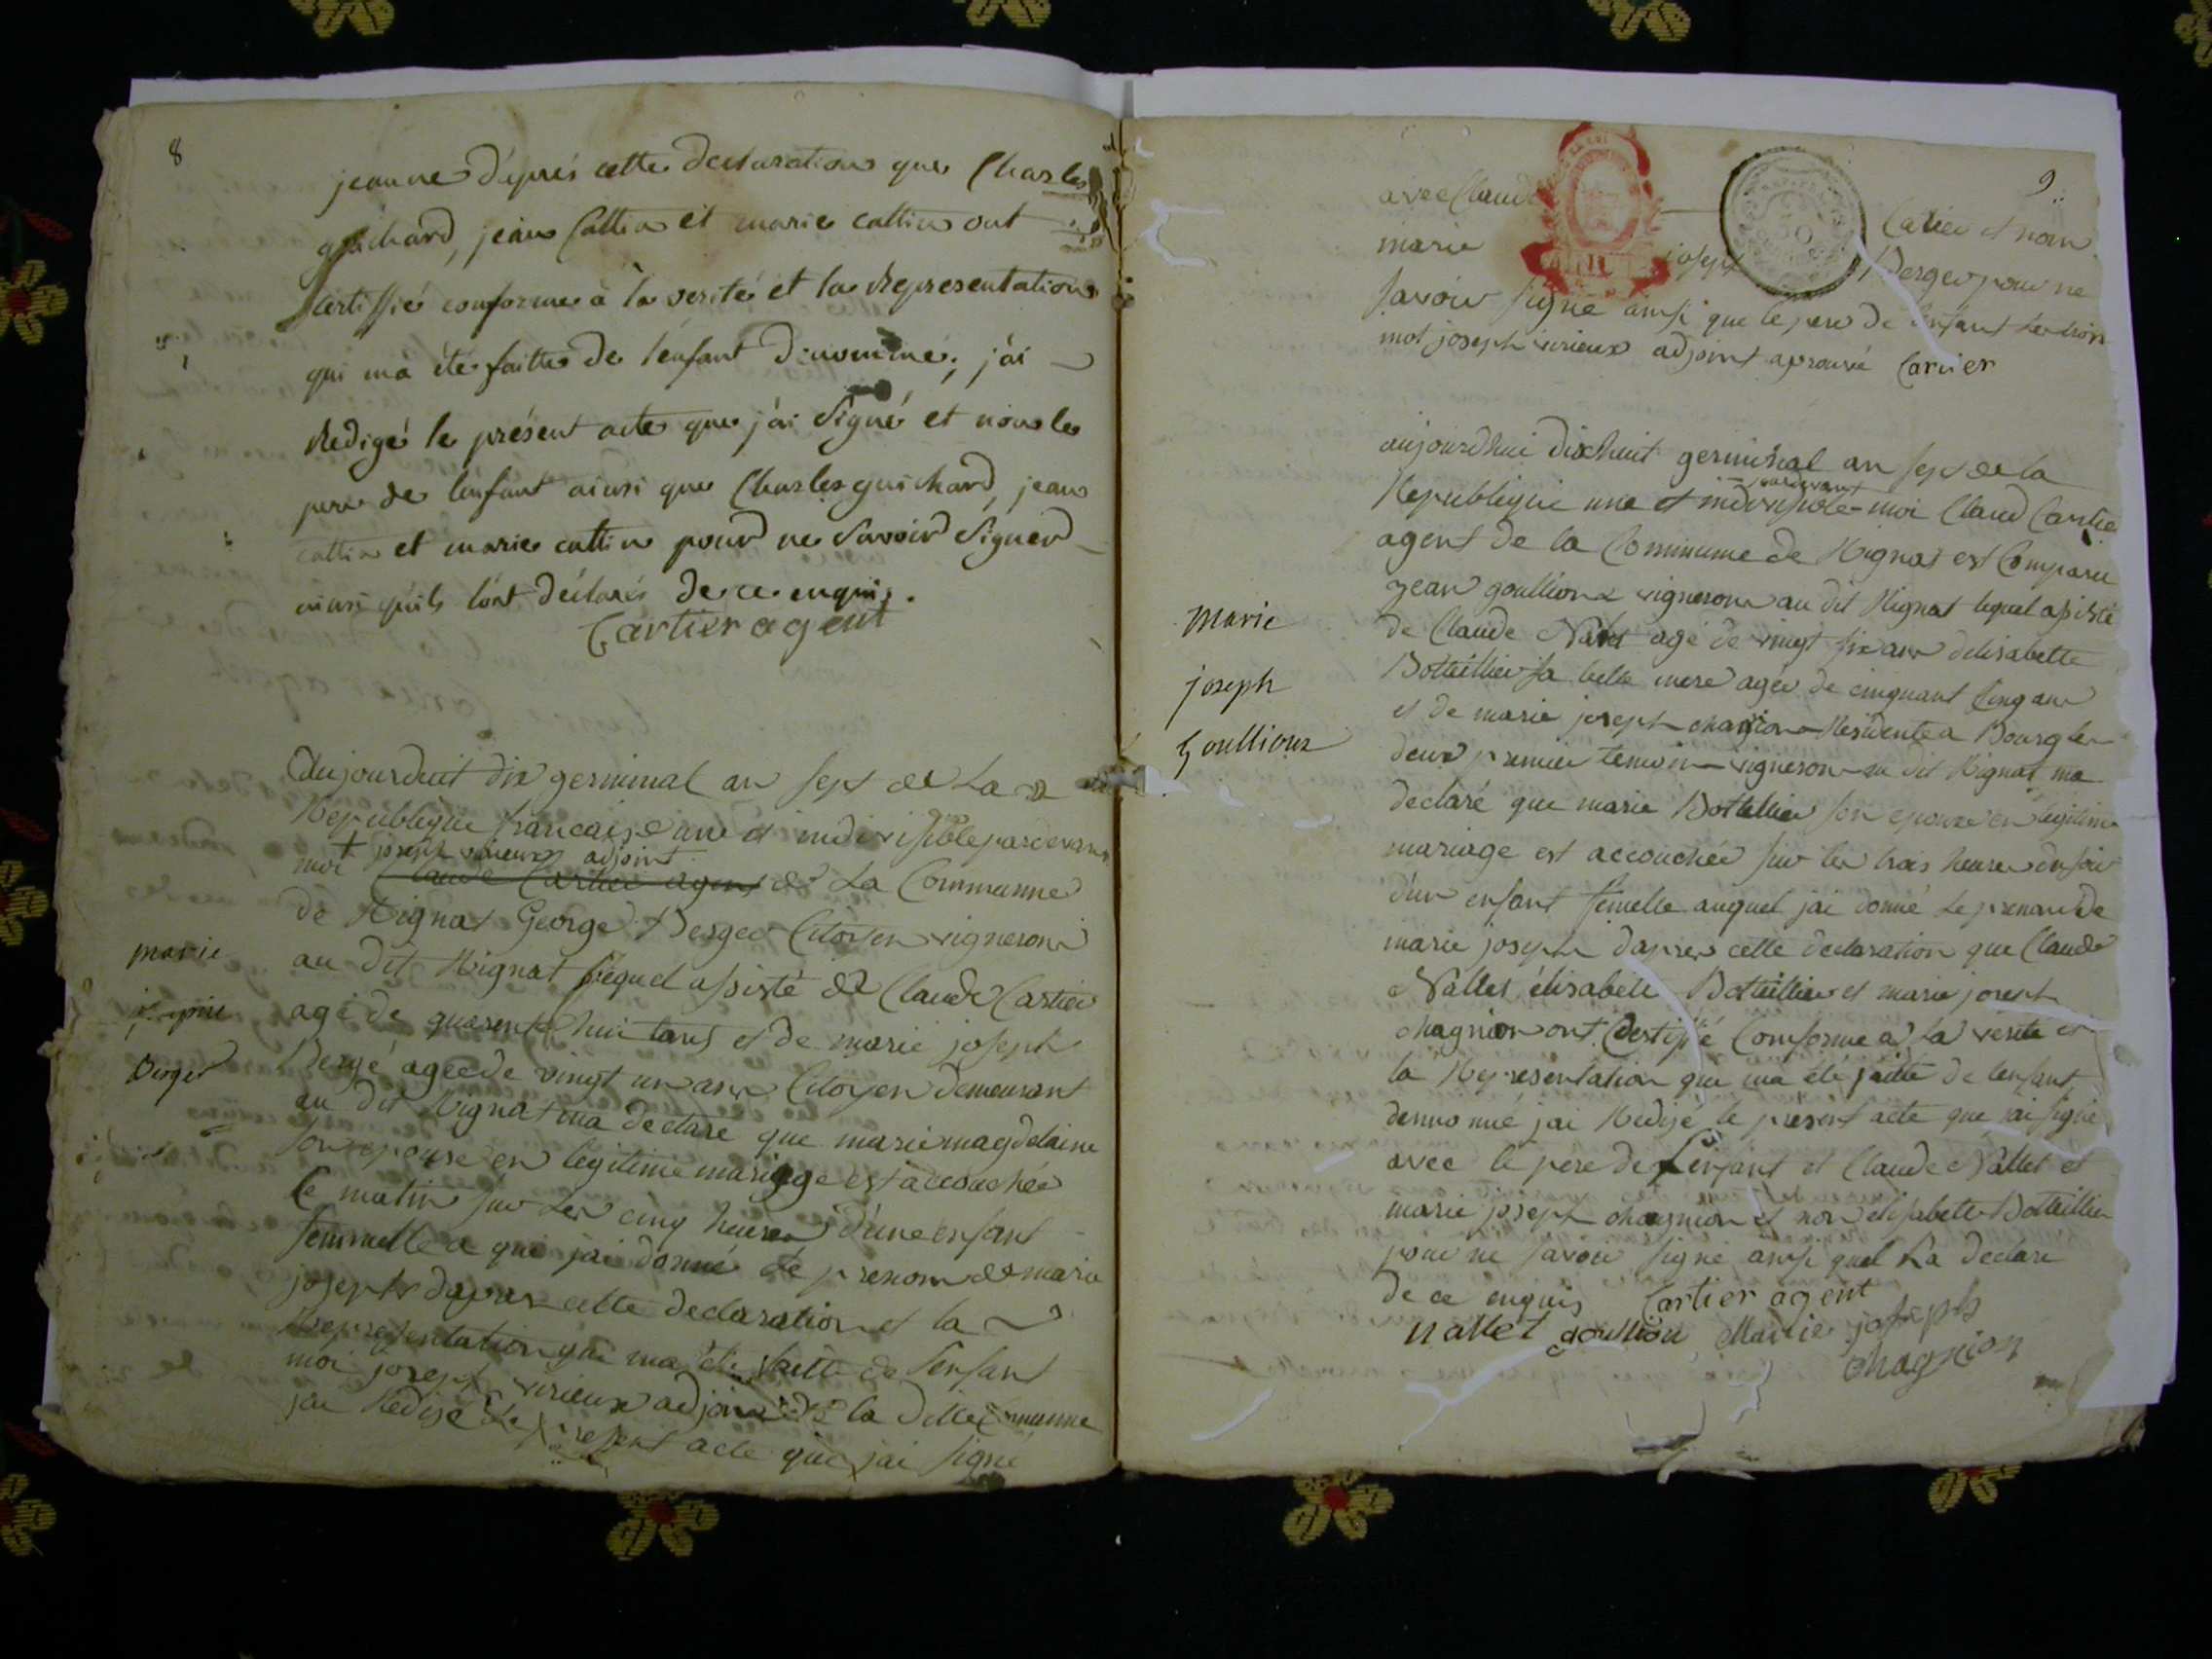 8
jeanne d'éprés cette declaration que Charles
guichard, jean Cattin et marie cattin ont
certiffié conforme à la verité et la Representation
qui m'a été faitte de l'enfant denommé, j'ai
Redigé le présent acte que j'ai Signé et non le
pere de l'enfant ainsi que Charles guichard, jean
cattin et marie cattin pour ne Savoir Signer
ainsi qu'ils l'ont déclarés de ce enquis.
Cartier agent
Aujourduit dix germinal an sept de La
Republique francaise une et indivisible pardevant
+ joseph virieux adjoint
moi Claude Cartier agent de La Commune
de Rignat George Berger Citoyen vigneron
au dit Rignat lequel assisté de Claude Cartier
agé de quarente huit ans et de marie joseph
Bergé agée de vingt un ans Citoyen demeurant
au dit Rignat ma declare que marie magdelaine
son epouse en legitime mariage est accouchée
le matin sur les cinq heures d'une enfant
femmelle a qui jai donné le prenom de marie
joseph dapres cette declaration et la
Representation qui ma été faitte de l'enfant
moi joseph virieux adjoint de la ditte Commune
jai Redigé Le present acte que jai signé
marie
josephe
Berger
9
avec Claude Catier et non
marie joseph Berger pour ne
savoir signé ainsi que le pere de l'enfant les trois
mot joseph virieux adjoint aprouvé Cartier
aujourdhui dixhuit germinal an sept de la
pardevant
Republique une et indivisible moi Claud Cartier
agent de la Commune de Rignat est Comparu
jean goullioux vigneron au dit Rignat lequel assisté
de Claude Nallet agé de vingt six ans delisabette
Botteillier sa belle mere agée de cinquant cinq ans
et de marie joseph chagnion Residente a Bourg les
deux premier temoin vigneron au dit Rignat ma
declaré que marie Bottellier son epouse en legitime
mariage est accouchée sur les trois heures du soir
d'un enfant femelle auquel jai donné le prenom de
marie joseph dapres cette declaration que Claude
Nallet élisabete Botteillier et marie joseph
chagnion ont Certifié Conforme a La verite et
la Representation qui ma été faitte de lenfant
dennomé jai Redijé le present acte que jai signé
avec le pere de Lenfant et Claude Nallet et
marie joseph chagnion et non elisabete Botteillier
pour ne savoir signé ainsi quel La declare
de ce enquis Cartier agent
nallet goullion Marie joseph
chagnion
marie
joseph
Goullioux